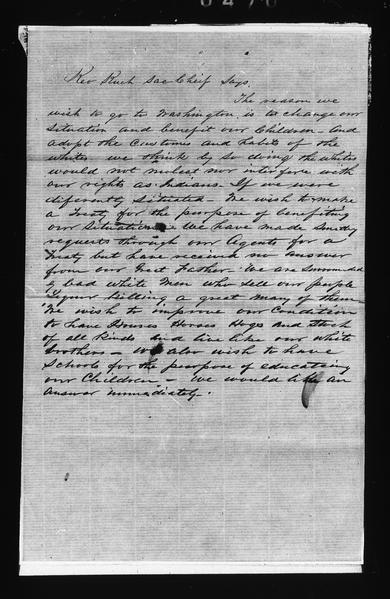 Keo Kuck Sac Cheif Says.
The reason we
wish to go to Washington is to change our
Situation and benefit our Children - and
adopt the Customs and habits of the
whites we think by so doing the whites
would not molest nor interfere with
our rights as Indians. If we were
diferently Situated We wish to make
a Treaty for the purpose of benefiting
our Situation - We have made Sundry
requests through our Agents for a
Treaty but have received no answer
from our Great Father - We are Surrounded
by bad white Men who sell our people
Liquor killing a great Many of them
We wish to improve our Condition
to have Houses Horses Hogs and Stock
of all Kinds and live like our white
brothers - We also wish to have
Schools for the purpose of educating
our Children - We would like an
answer immediately.